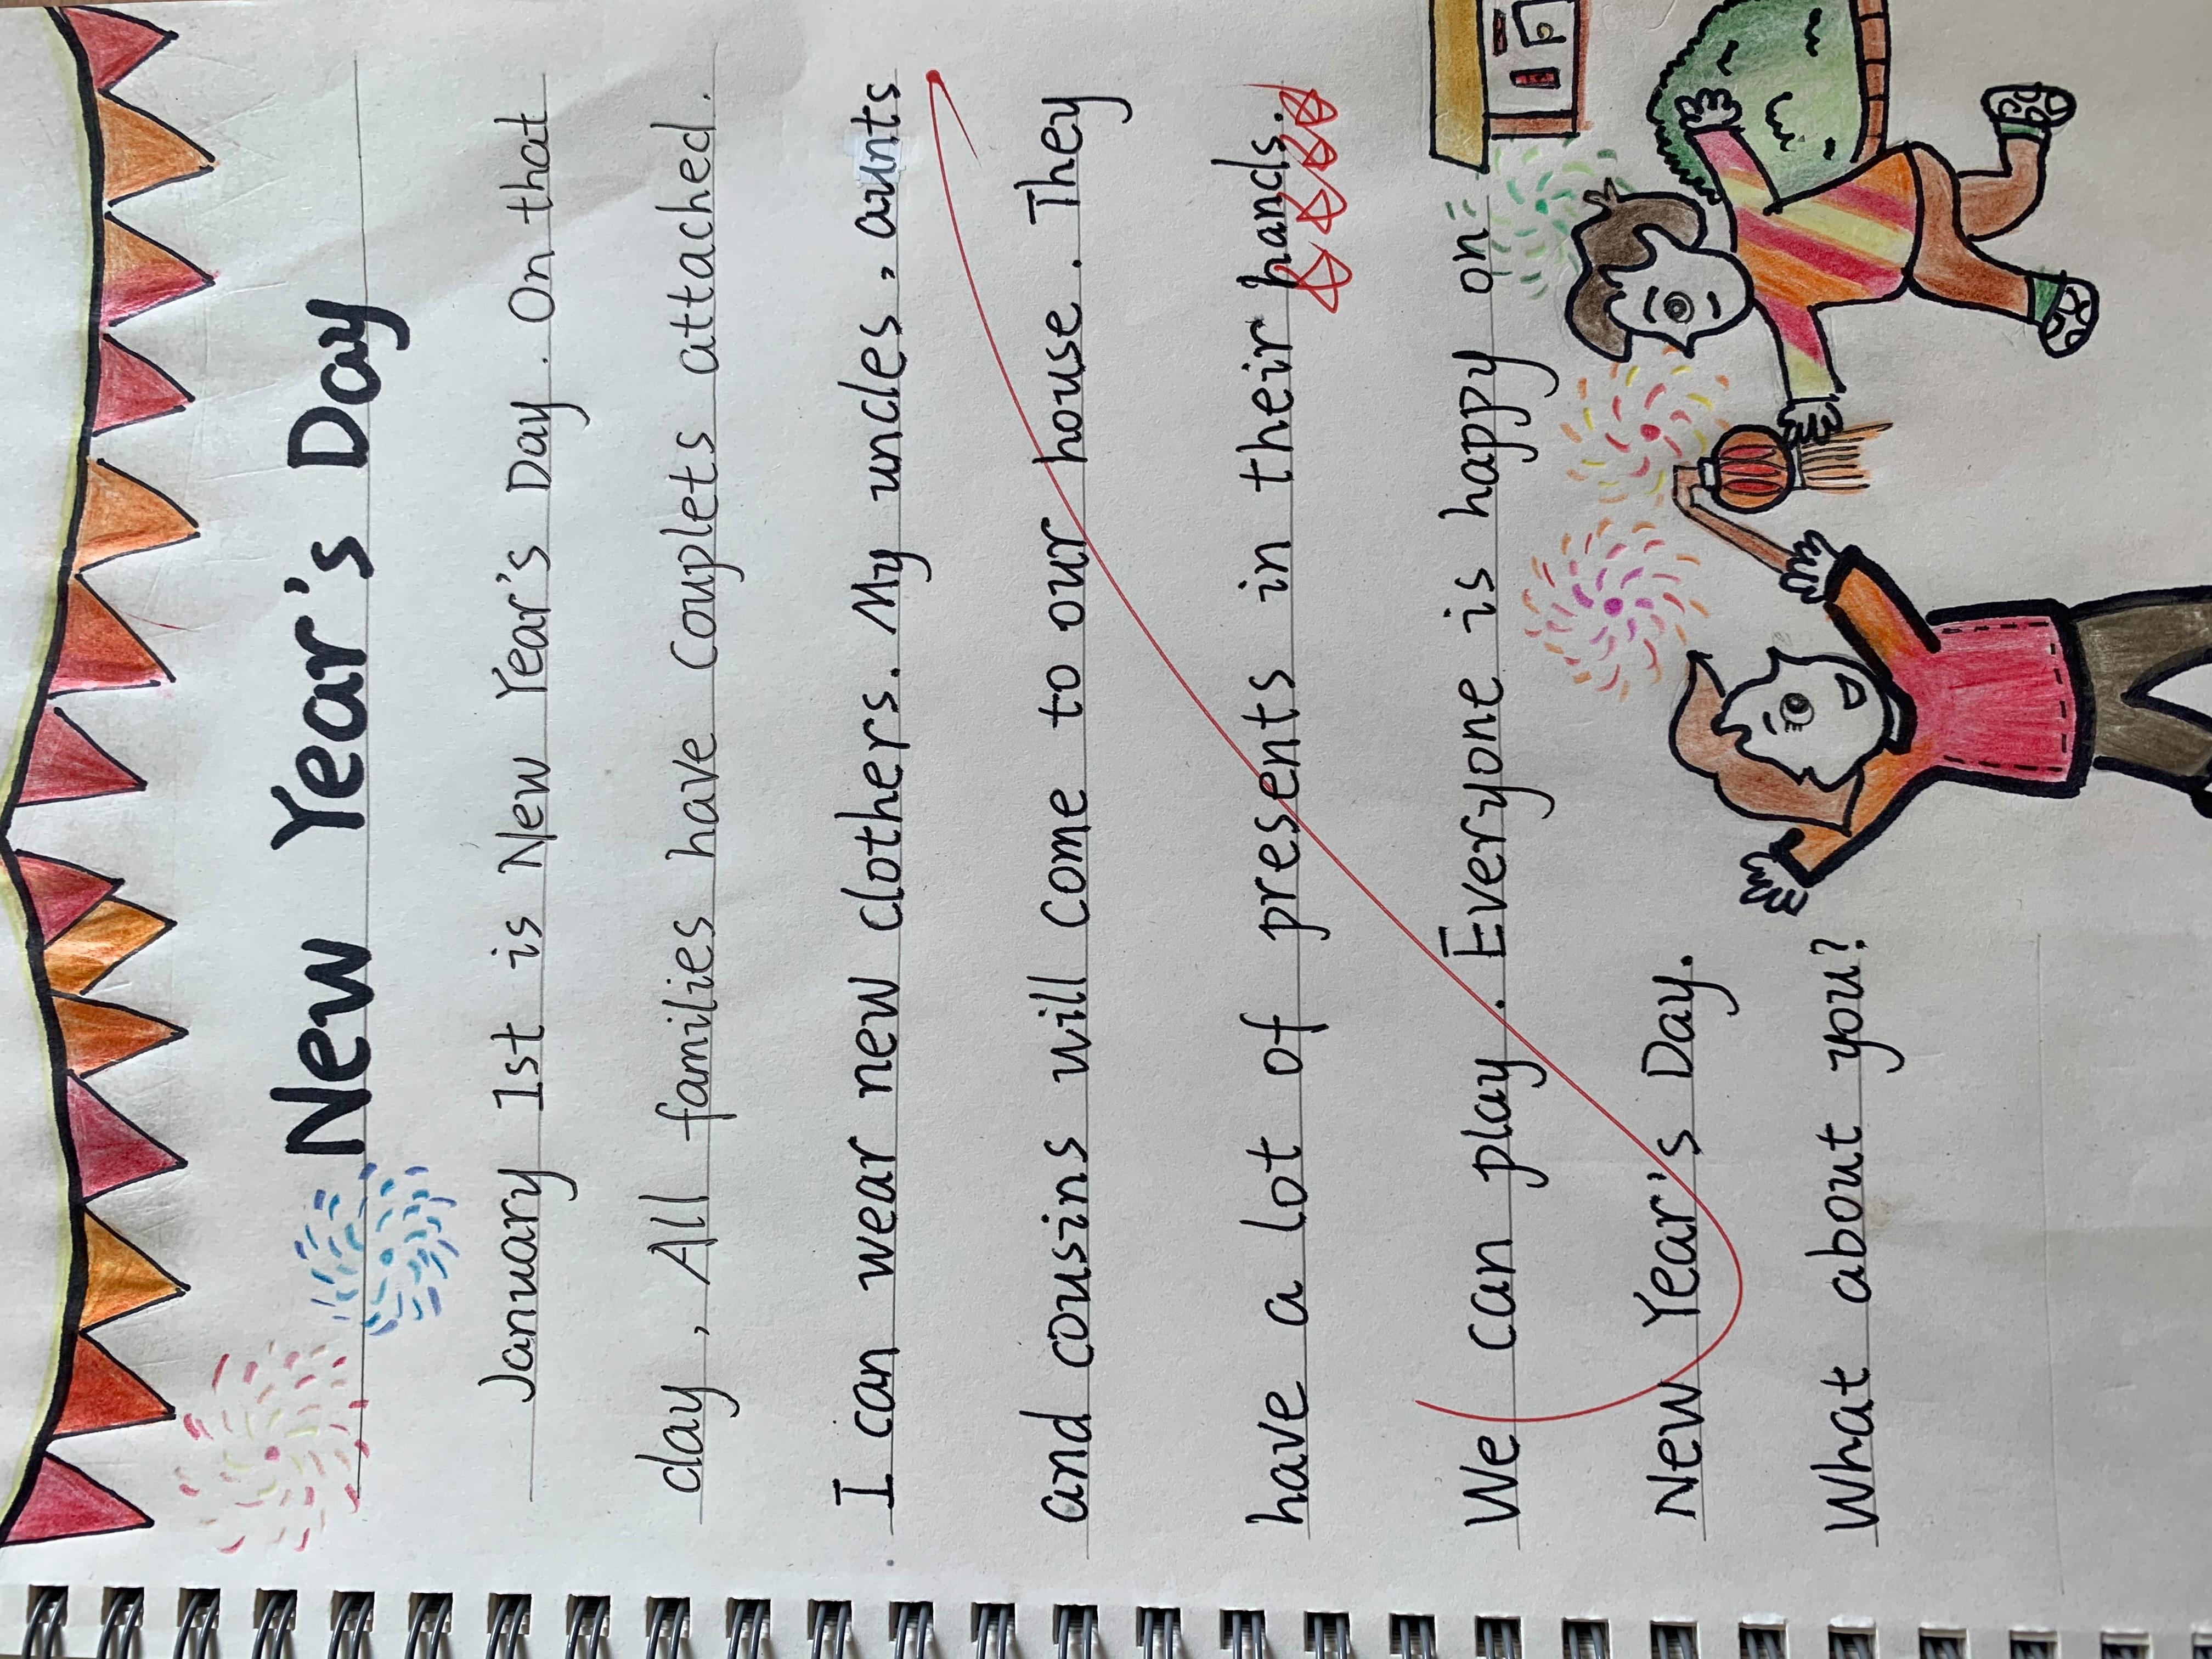 New Year's Day
January 1st is New Year's Day. On that
day, All families have couplets attached.
I can wear new clothers. My uncles, aunts
and cousins will come to our house. They
have a lot of presents in their hands.
We can play. Everyone is happy on
New Year's Day.
What about you?